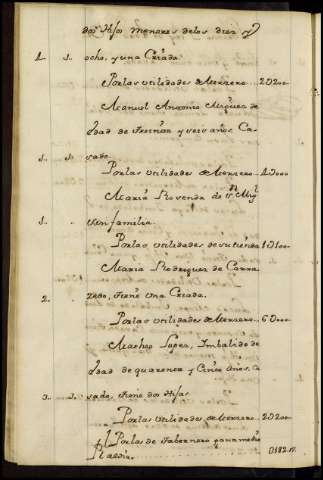 dos Hijos menores de los diez y
1. 1. ocho, y una Criada.
Por las utilidades de Mesonero 2 D 200
Manuel Antonio Miguez de
Edad de treinta y seis años, Ca-
1. 1. sado.
Por las utilidades de Mesonero 4 D 000
Maria Rosenda de
1. sin familia.
Por las utilidades de su tienda 1 D 100
Maria Rodriguez de
2. tiene una Criada.
Por las utilidades de Mesonero 6 D 000
Matheo Lopez, Imbalido de
Edad de quarenta y Cinco años, Ca-
3. 1. sado, tiene dos Hijas
Por las utilidades de Mesonero 2 D 200
Por las de Tabernero